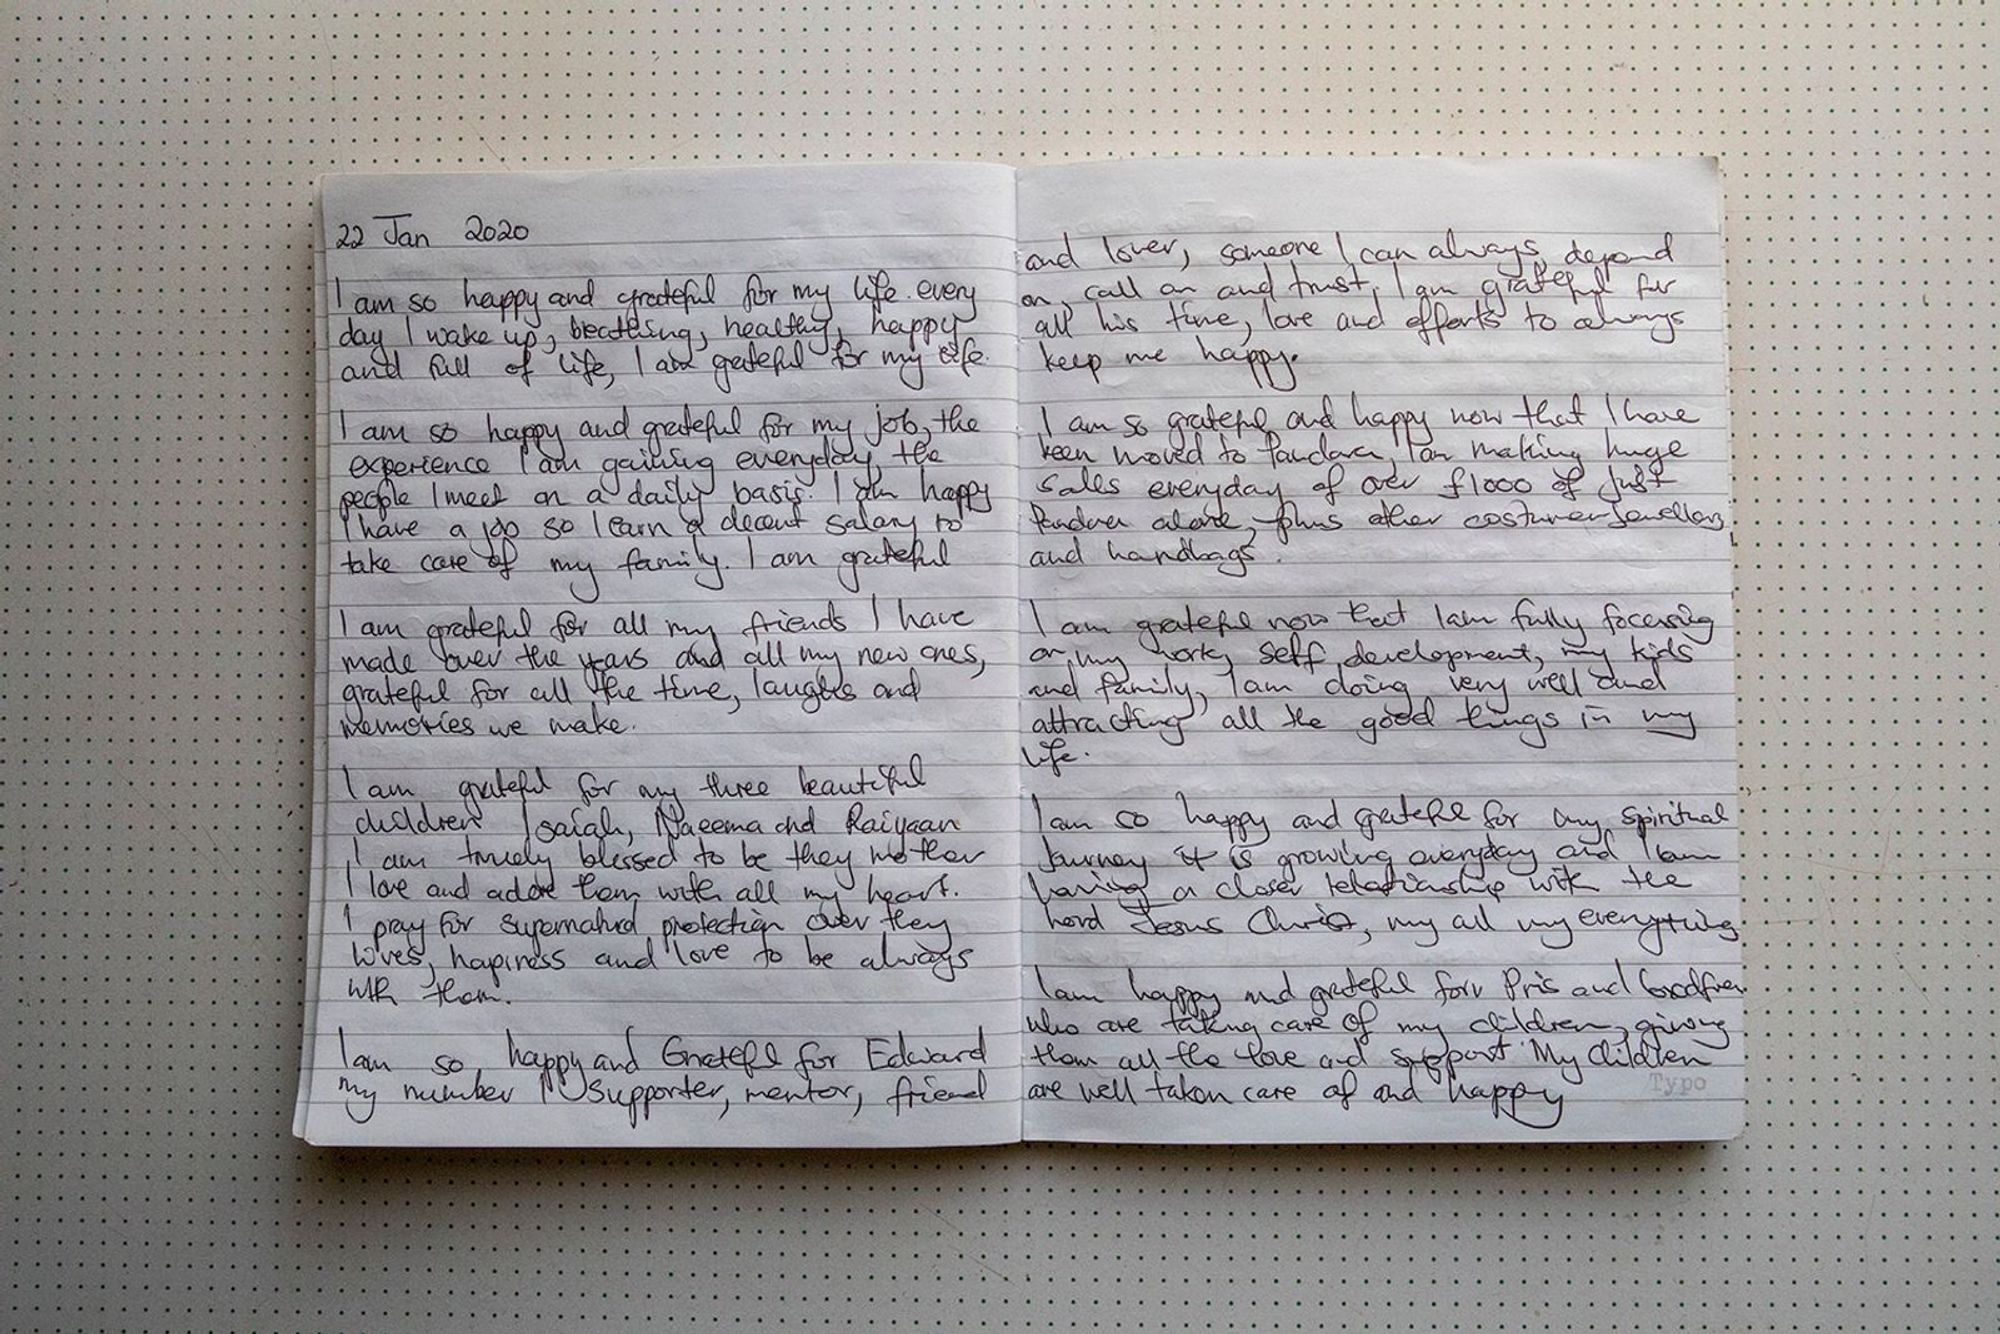 22 Jan 2020
I am so happy and grateful for my life. every
day I wake up, breathing, healthy, happy
and full of life, I am grateful for my life.
I am so happy and grateful for my job, the
experience I am gaining everyday, the
people I meet on a daily basis. I am happy
I have a job so I earn a decent salary to
take care of my family. I am grateful
I am grateful for all my friends I have
made over the years and all my new ones,
grateful for all the time, laughs and
memories we make.
I am grateful for my three beautiful
children Isaiah, Naeema and Raiyaan
I am truely blessed to be they mother
I love and adore them with all my heart.
I pray for supernatural protection over they
lives, happiness and love to be always
with them.
I am so happy and Grateful for Edward
my number 1 supporter, mentor, friend
and lover, someone I can always depend
on, call on and trust. I am grateful for
all his time, love and efforts to always
keep me happy.
I am so grateful and happy now that I have
been moved to Pandora, I am making huge
sales everyday of over £1000 of just
Pandora alone, plus other costumer jewellery
and handbags.
I am grateful now that I am fully focusing
on my work, self development, my kids
and family, I am doing very well and
attracting all the good things in my
life.
I am so happy and grateful for my spiritual
Journey it is growing everyday and I am
having a closer relationship with the
Lord Jesus Christ, my all my everything
I am happy and grateful for Pris and
who are taking care of my children, giving
them all the love and support My Children
are well taken care of and happy
Typo